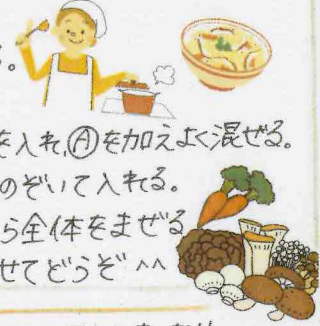 る。
を入れ、Ⓐを加えよく混ぜる。
のぞいて入れる。
ら全体をまぜる
せてどうぞ^^